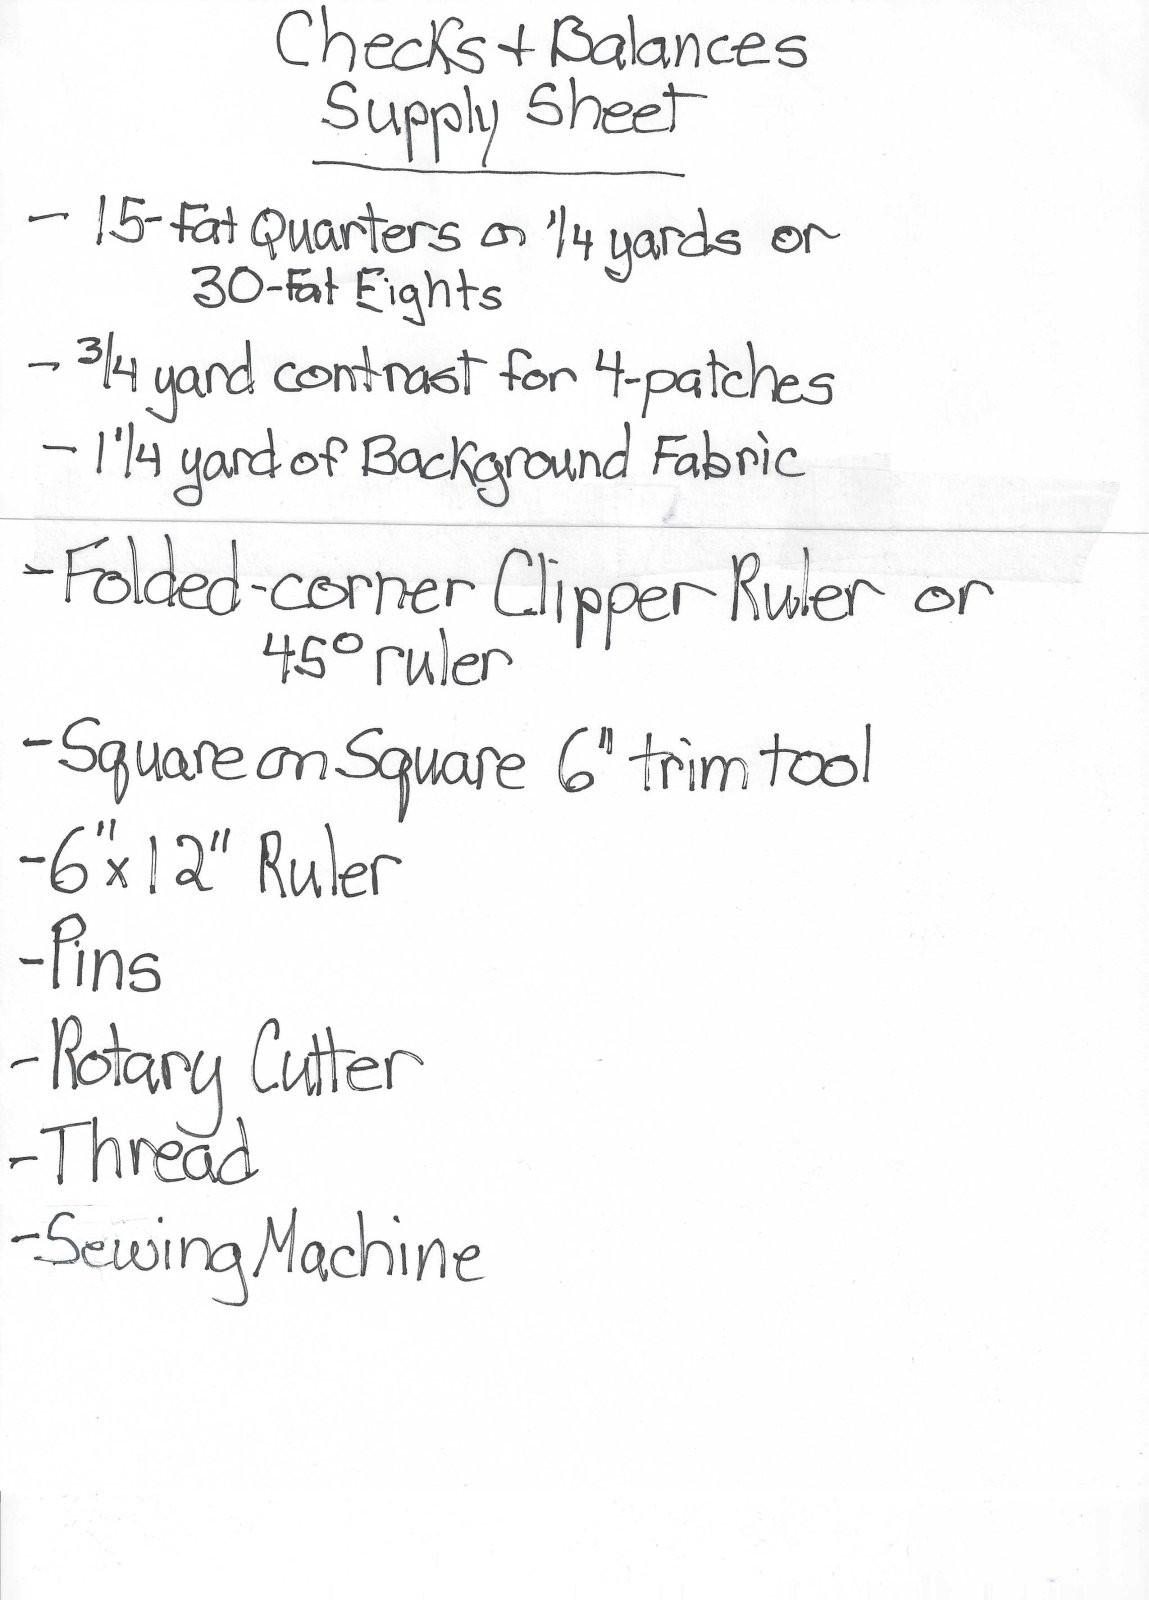 Checks + Balances
Supply Sheet
- 15-Fat Quarters or 1/4 yards or
30-Fat Eights
- 3/4 yard contrast for 4-patches
- 1 1/4 yard of Background Fabric
- Folded-corner Clipper Ruler or
45° ruler
- Square on Square 6" trim tool
- 6" x 12" Ruler
- Pins
- Rotary Cutter
- Thread
- Sewing Machine